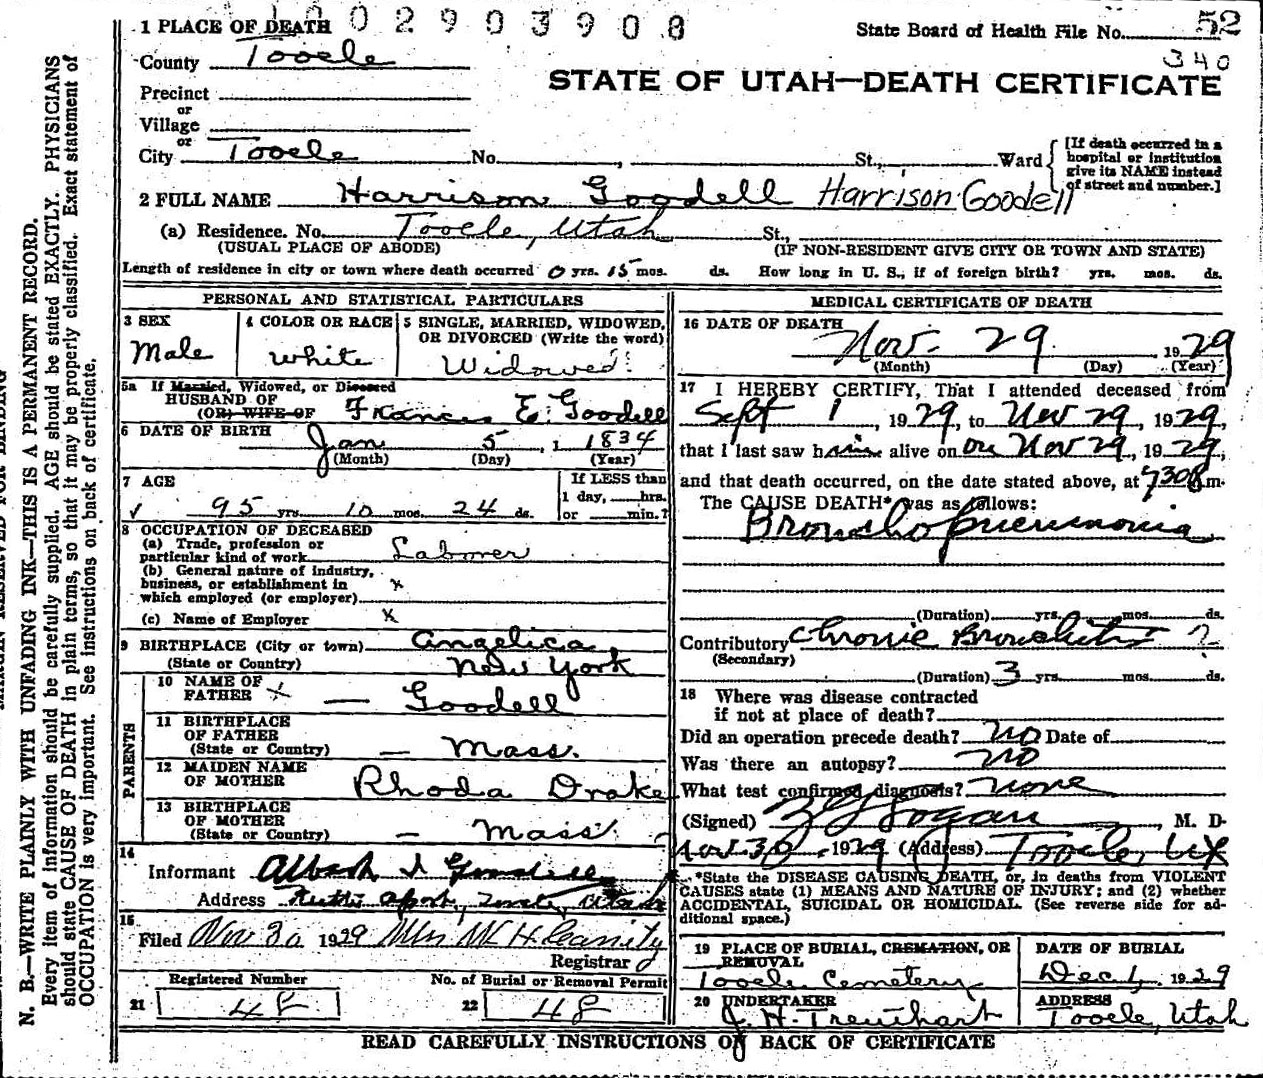 1002903908
State Board of Health File No. 52
340
1 PLACE OF DEATH
County Tooele
STATE OF UTAH—DEATH CERTIFICATE
Precinct
or
Village
or
City Tooele No. , St., Ward
[If death occurred in a
hospital or institution
give its NAME instead
of street and number.]
2 FULL NAME Harrison Goodell Harrison Goodell
(a) Residence. No. Tooele, Utah St.,
(USUAL PLACE OF ABODE) (IF NON-RESIDENT GIVE CITY OR TOWN AND STATE)
Length of residence in city or town where death occurred 0 yrs. 15 mos. ds. How long in U. S., if of foreign birth? yrs. mos. ds.
PERSONAL AND STATISTICAL PARTICULARS
3 SEX
Male
4 COLOR OR RACE
White
5 SINGLE, MARRIED, WIDOWED,
OR DIVORCED (Write the word)
Widowed
5a If Married, Widowed, or Divorced
HUSBAND OF
(OR) WIFE OF Frances E. Goodell
6 DATE OF BIRTH Jan 5, 1 1834
(Month) (Day) (Year)
7 AGE
95 yrs. 10 mos. 24 ds.
If LESS than
1 day, hrs.
or min.?
8 OCCUPATION OF DECEASED
(a) Trade, profession or
particular kind of work Laborer
(b) General nature of industry,
business, or establishment in x
which employed (or employer)
(c) Name of Employer x
9 BIRTHPLACE (City or town) Angelica
(State or Country) New York
PARENTS
10 NAME OF
FATHER x — Goodell
11 BIRTHPLACE
OF FATHER
(State or Country) — Mass.
12 MAIDEN NAME
OF MOTHER Rhoda Drake
13 BIRTHPLACE
OF MOTHER
(State or Country) — Mass.
14
Informant Goodell
Address Apart, Tooele, Utah
15
Filed Nov 30 1929 Mrs W H Cassity
Registrar
Registered Number
21 48
No. of Burial or Removal Permit
22 48
MEDICAL CERTIFICATE OF DEATH
16 DATE OF DEATH
Nov. 29, 1929
(Month) (Day) (Year)
17 I HEREBY CERTIFY, That I attended deceased from
Sept 1, 1929, to Nov 29, 1929,
that I last saw him alive on on Nov 29, 1929,
and that death occurred, on the date stated above, at 730P.m.
The CAUSE DEATH* was as follows:
Broncho pneumonia
(Duration) yrs. mos. ds.
Contributory Chronic Bronchitis ?
(Secondary)
(Duration) 3 yrs. mos. ds.
18 Where was disease contracted
if not at place of death?
Did an operation precede death? no Date of
Was there an autopsy? no
What test confirmed diagnosis? none
(Signed) , M. D.
Nov. 30, 1929 (Address) Tooele, Ut
*State the DISEASE CAUSING DEATH, or, in deaths from VIOLENT
CAUSES state (1) MEANS AND NATURE OF INJURY; and (2) whether
ACCIDENTAL, SUICIDAL OR HOMICIDAL. (See reverse side for ad-
ditional space.)
19 PLACE OF BURIAL, CREMATION, OR
REMOVAL
Tooele Cemetery
DATE OF BURIAL
Dec 1, 1929
20 UNDERTAKER
ADDRESS
Tooele, Utah
READ CAREFULLY INSTRUCTIONS ON BACK OF CERTIFICATE
N. B.—WRITE PLAINLY WITH UNFADING INK—THIS IS A PERMANENT RECORD.
Every item of information should be carefully supplied. AGE should be stated EXACTLY. PHYSICIANS
should state CAUSE OF DEATH in plain terms, so that it may be properly classified. Exact statement of
OCCUPATION is very important. See instructions on back of certificate.